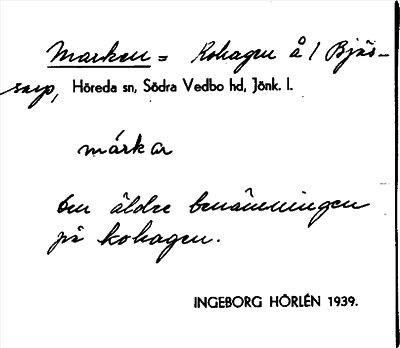 Marken = Kohagen å / Bjäs-
sarp, Höreda sn, Södra Vedbo hd, Jönk. l.
márkar
Den äldre benämningen
på kohagen.
INGEBORG HÖRLÉN 1939.